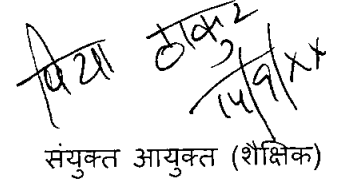 पिया ठाकुर
14/9/xx
संयुक्त आयुक्त (शैक्षिक)